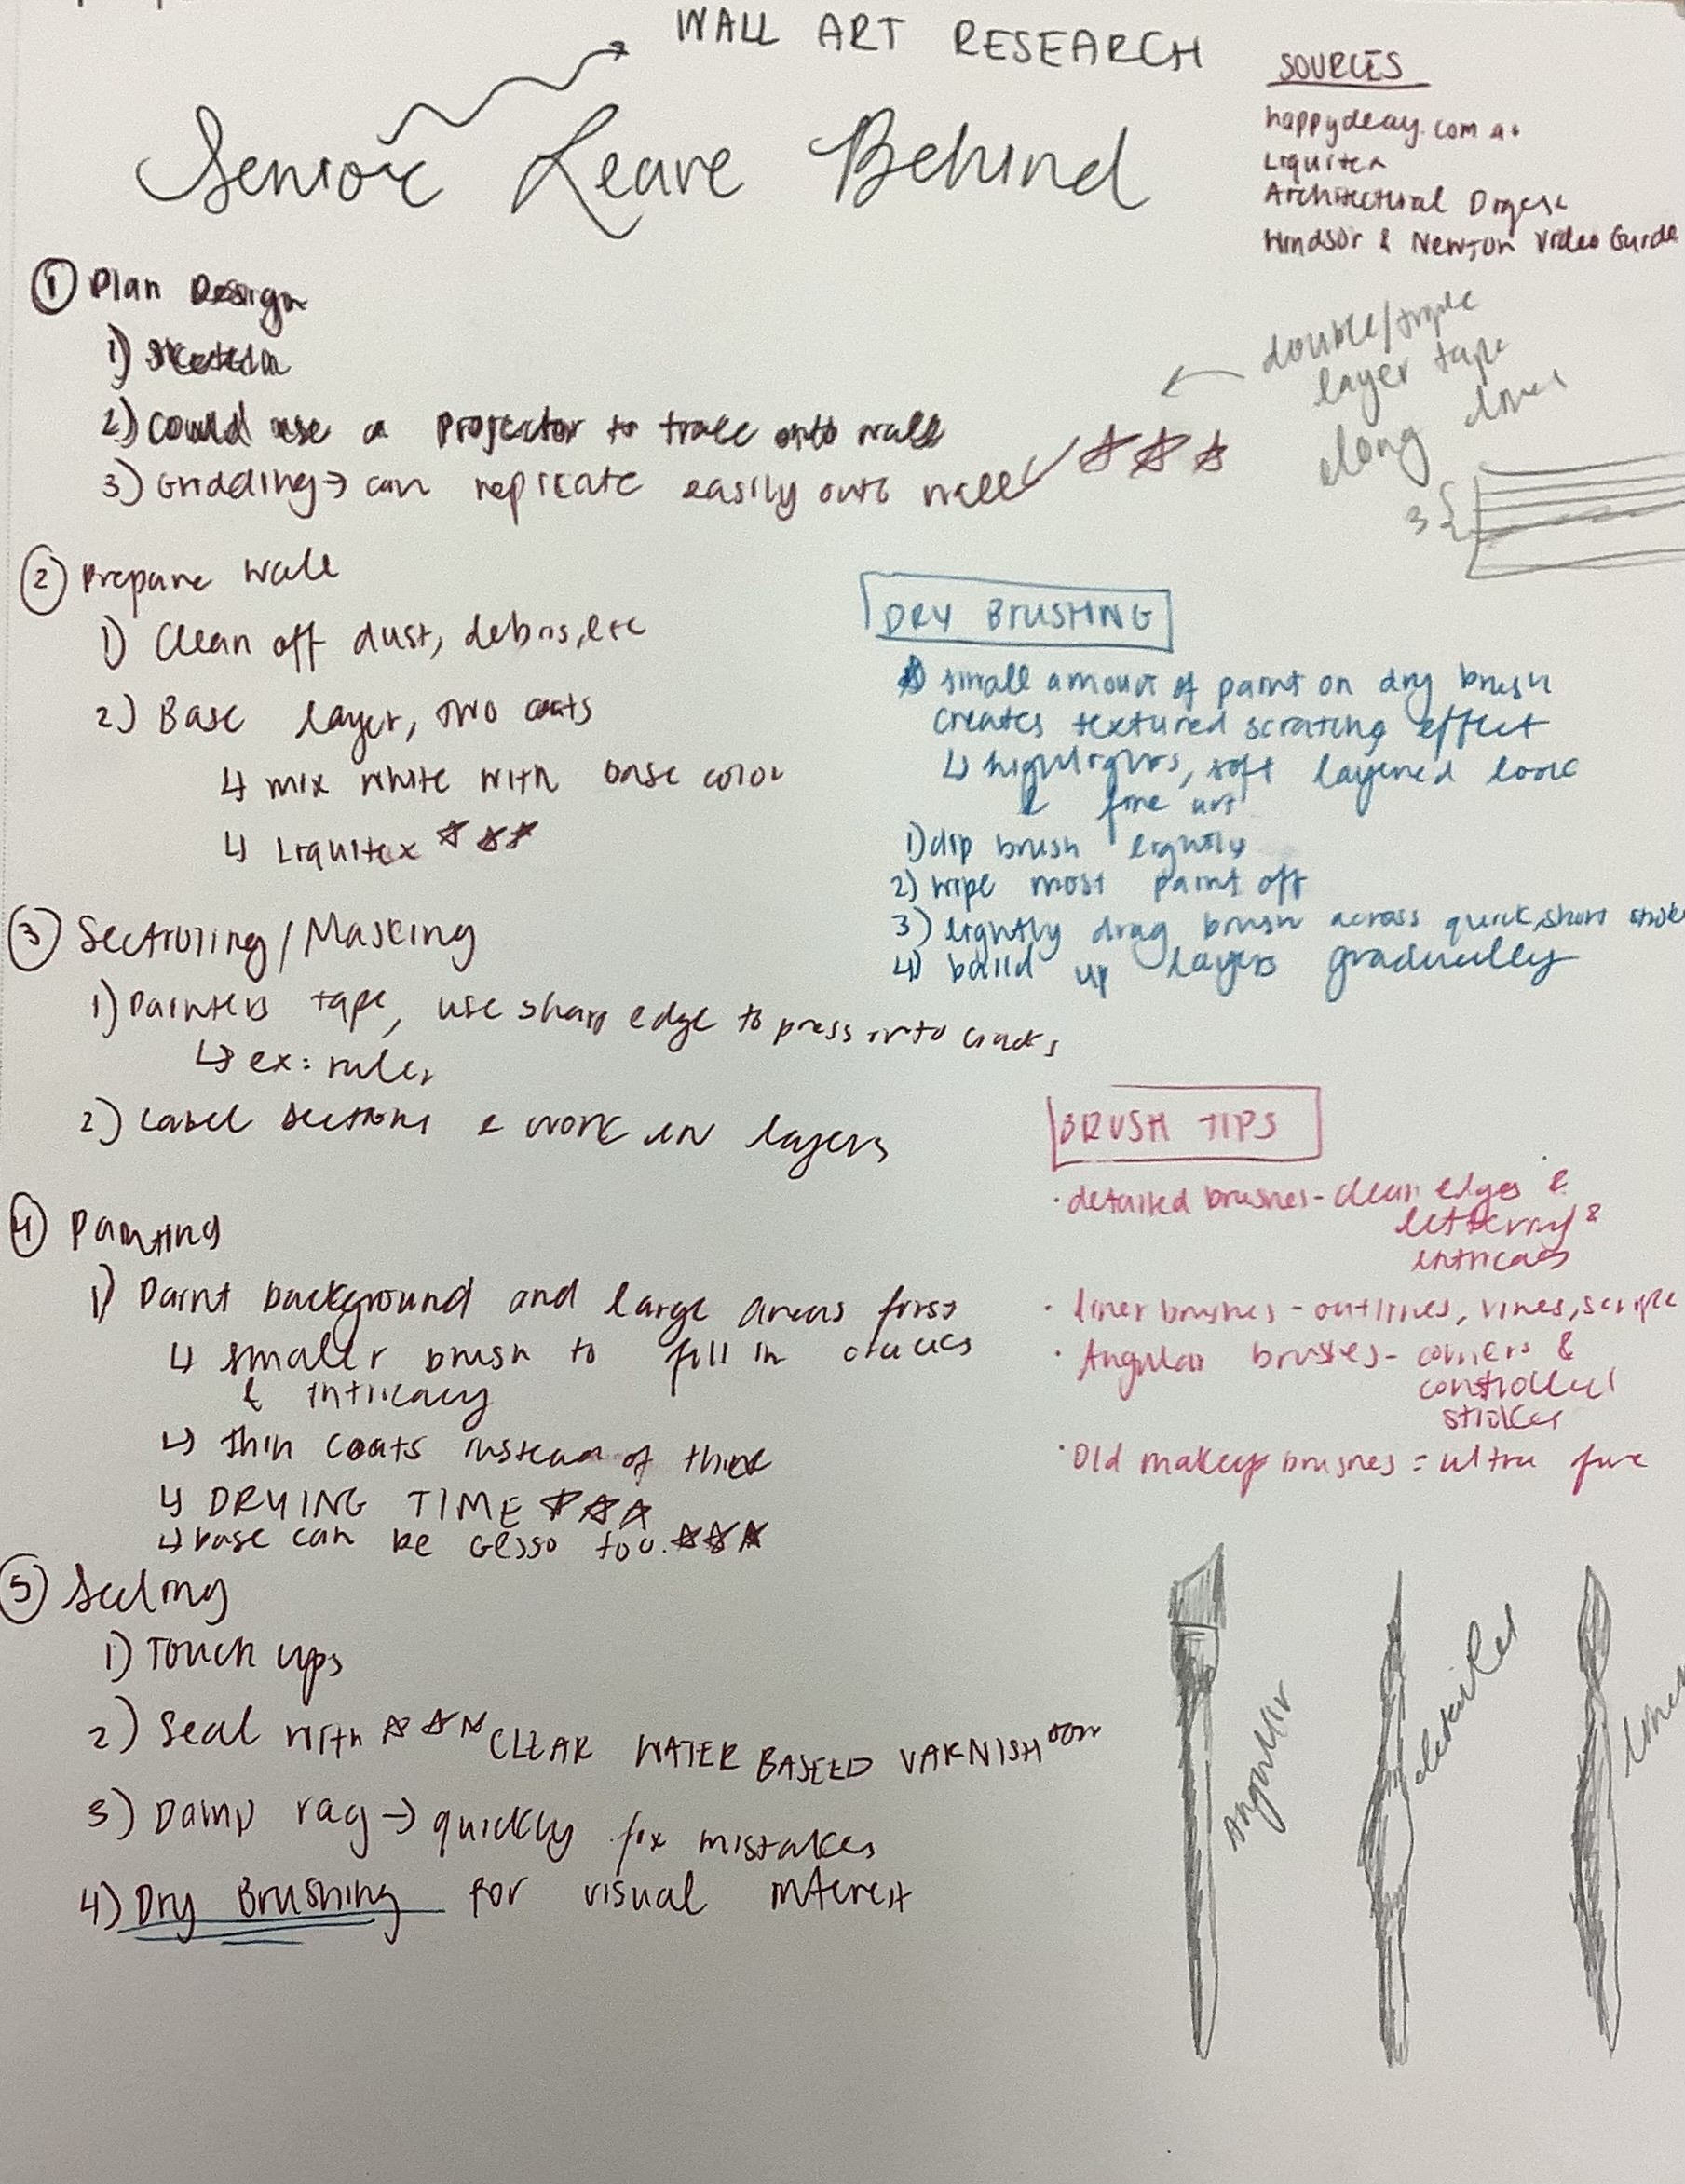 WALL ART RESEARCH
Senior Leave Behind
SOURCES
happydecay.com.au
Liquitex
Architectural Digest
Windsor & Newton Video Guide
① Plan Design
1) Sketch
2) Could use a projector to trace onto wall
3) Gridding → can replicate easily onto wall
double/triple
layer tape
along lines
3 {
② Prepare Wall
1) Clean off dust, debris, etc
2) Base layer, two coats
↳ mix white with base color
↳ Liquitex ☆☆☆
DRY BRUSHING
small amount of paint on dry brush
creates textured scrating effect
↳ highlights, soft layered look
& fine art
1) dip brush lightly
2) wipe most paint off
3) lightly drag brush across quick, short
4) build up layers gradually
③ Sectioning / Masking
1) Painters tape, use sharp edge to press into cracks
↳ ex: ruler
2) Label sections & work in layers
BRUSH TIPS
· detailed brushes - clean edges &
lettering &
· liner brushes - outlines, vines,
· Angular brushes - corners &
controlled
strokes
· Old makeup brushes = ultra fine
④ Painting
1) Paint background and large areas first
↳ smaller brush to fill in cracks
& intricacy
↳ thin coats instead of thick
↳ DRYING TIME ☆☆☆
↳ base can be Gesso too. ☆☆☆
⑤ Sealing
1) Touch ups
2) Seal with ☆☆☆ CLEAR WATER BASED VARNISH
3) Damp rag → quickly fix mistakes
4) Dry Brushing for visual interest
Angular
detailed
liner